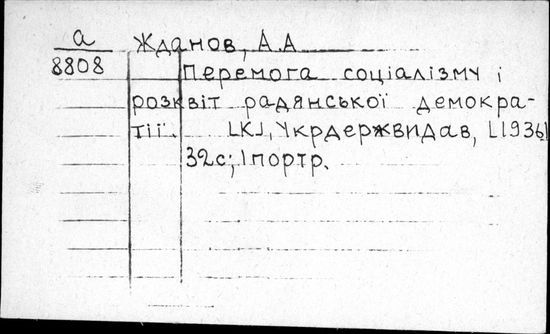 а
8808
Жданов, А.А
Перемога соціалізму і
розквіт радянської демокра-
тії. [К], Укрдержвидав, [1936]
32с; 1 портр.